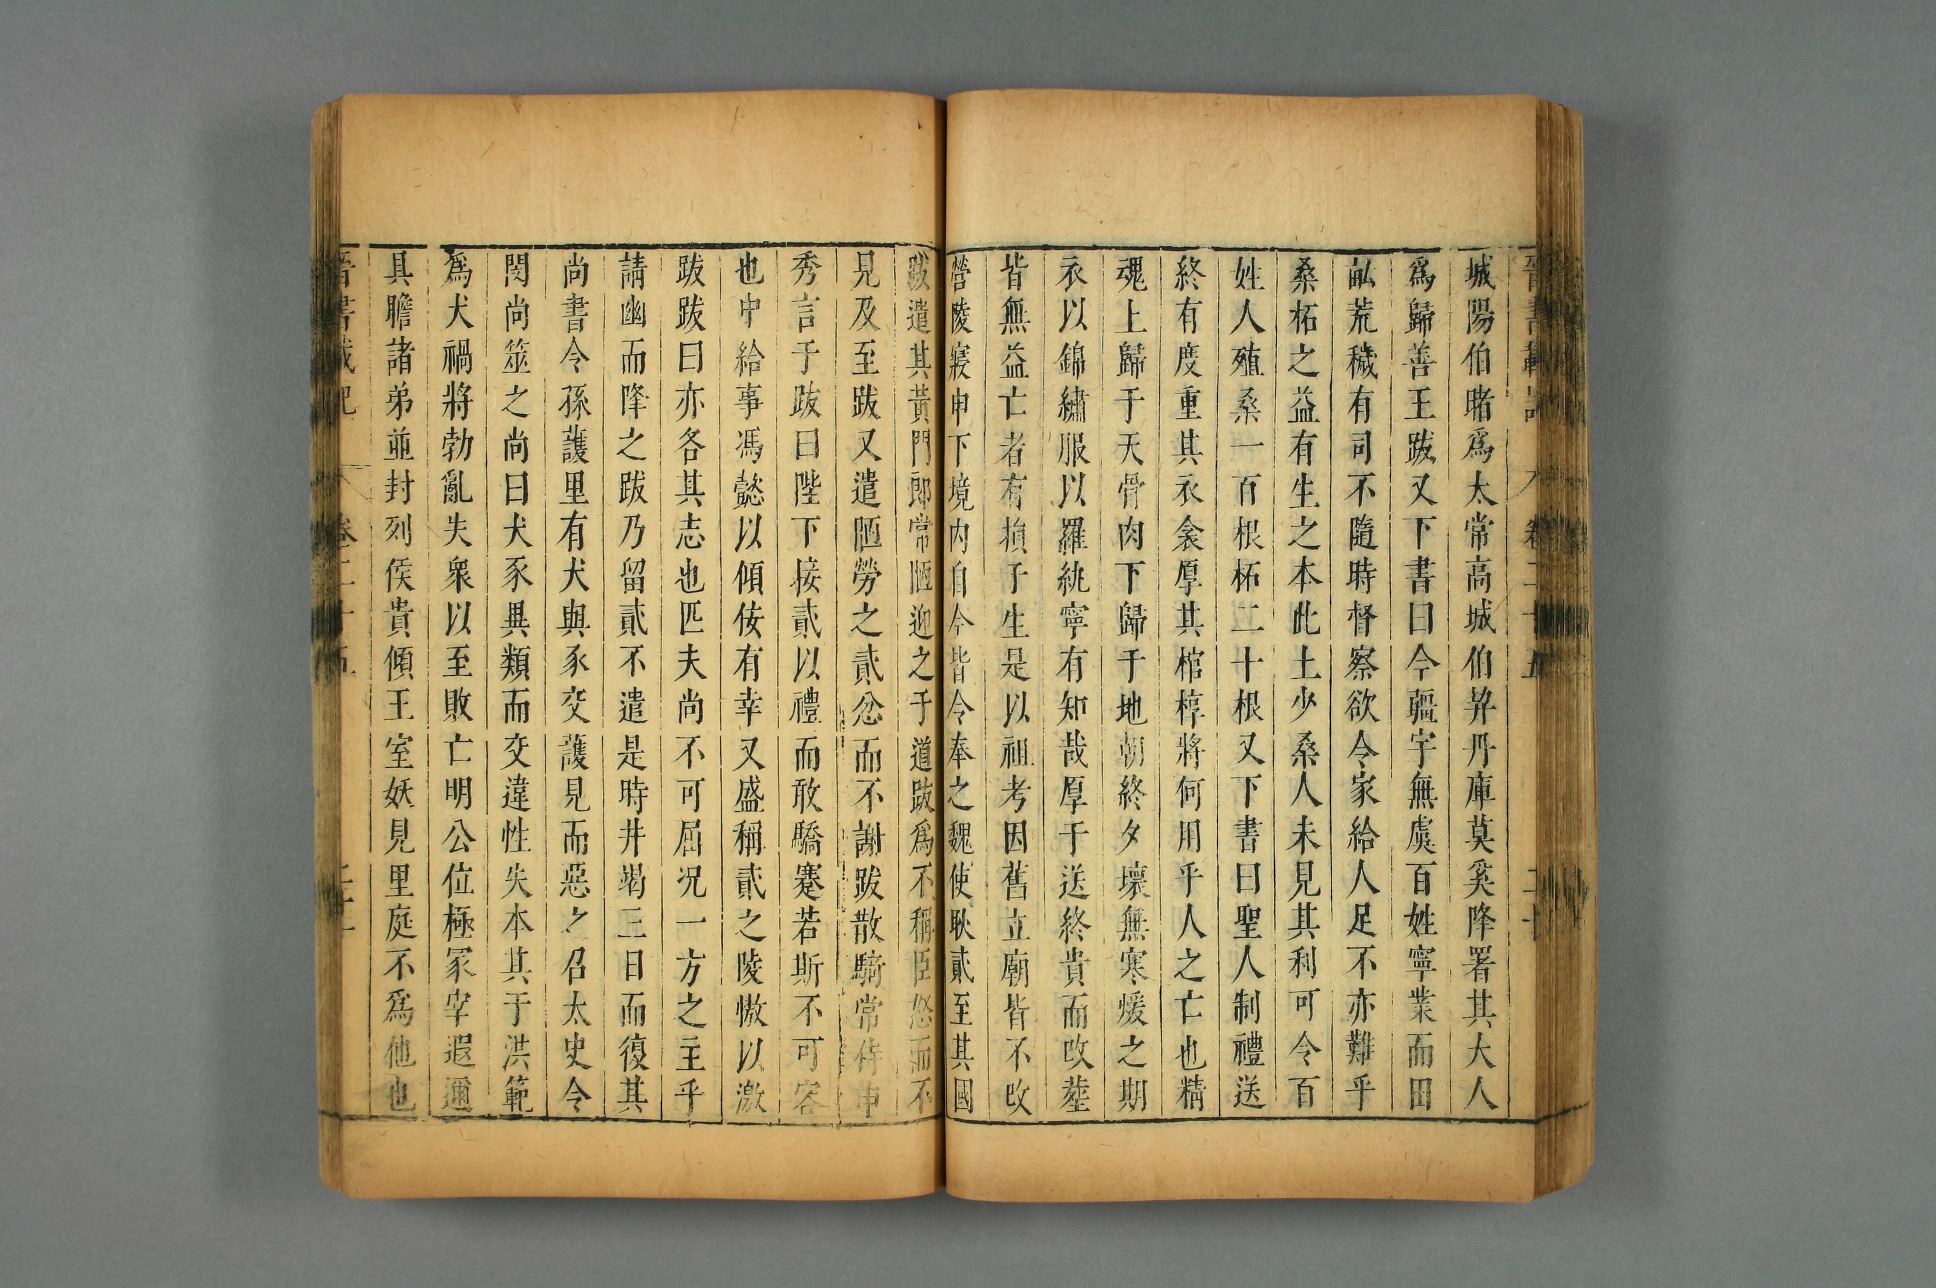 晉書載記　卷二十五　二十
城陽伯睹爲太常高城伯契丹庫莫奚降署其大人
爲歸善王跋又下書曰今疆宇無虞百姓寧業而田
畝荒穢有司不隨時督察欲令家給人足不亦難乎
桑柘之益有生之本此土少桑人未見其利可令百
姓人殖桑一百根柘二十根又下書曰聖人制禮送
終有度重其衣衾厚其棺椁將何用乎人之亡也精
魂上歸于天骨肉下歸于地朝終夕壞無寒煖之期
衣以錦繡服以羅紈寧有知哉厚于送終貴而改葬
皆無益亡者有損于生是以祖考因舊立廟皆不改
營陵寢申下境内自今皆令奉之魏使耿貳至其國
跋遣其黃門郎常陋迎之于道跋爲不稱臣怒而不
見及至跋又遣陋勞之貳忿而不謝跋散騎常侍申
秀言于跋曰陛下接貳以禮而敢驕蹇若斯不可容
也中給事馮懿以傾佞有幸又盛稱貳之陵慠以激
跋跋曰亦各其志也匹夫尚不可屈况一方之主乎
請幽而降之跋乃留貳不遣是時井竭三日而復其
尚書令孫護里有犬與豕交護見而惡之召太史令
閔尚筮之尚曰犬豕異類而交違性失本其于洪範
爲犬禍將勃亂失衆以至敗亡明公位極冢宰遐邇
具瞻諸弟並封列侯貴傾王室妖見里庭不爲他也
晉書載記　卷二十五